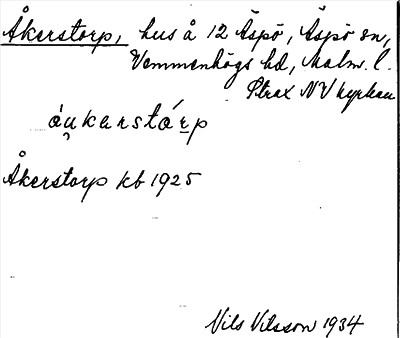 Åkerstorp, hus å 12 Äspö, Äspö sn,
Vemmenhögs hd, Malm. l.
Strax NV kyrkan
áu̯karstár̠p
Åkerstorp kb 1925
Nils Nilsson 1934